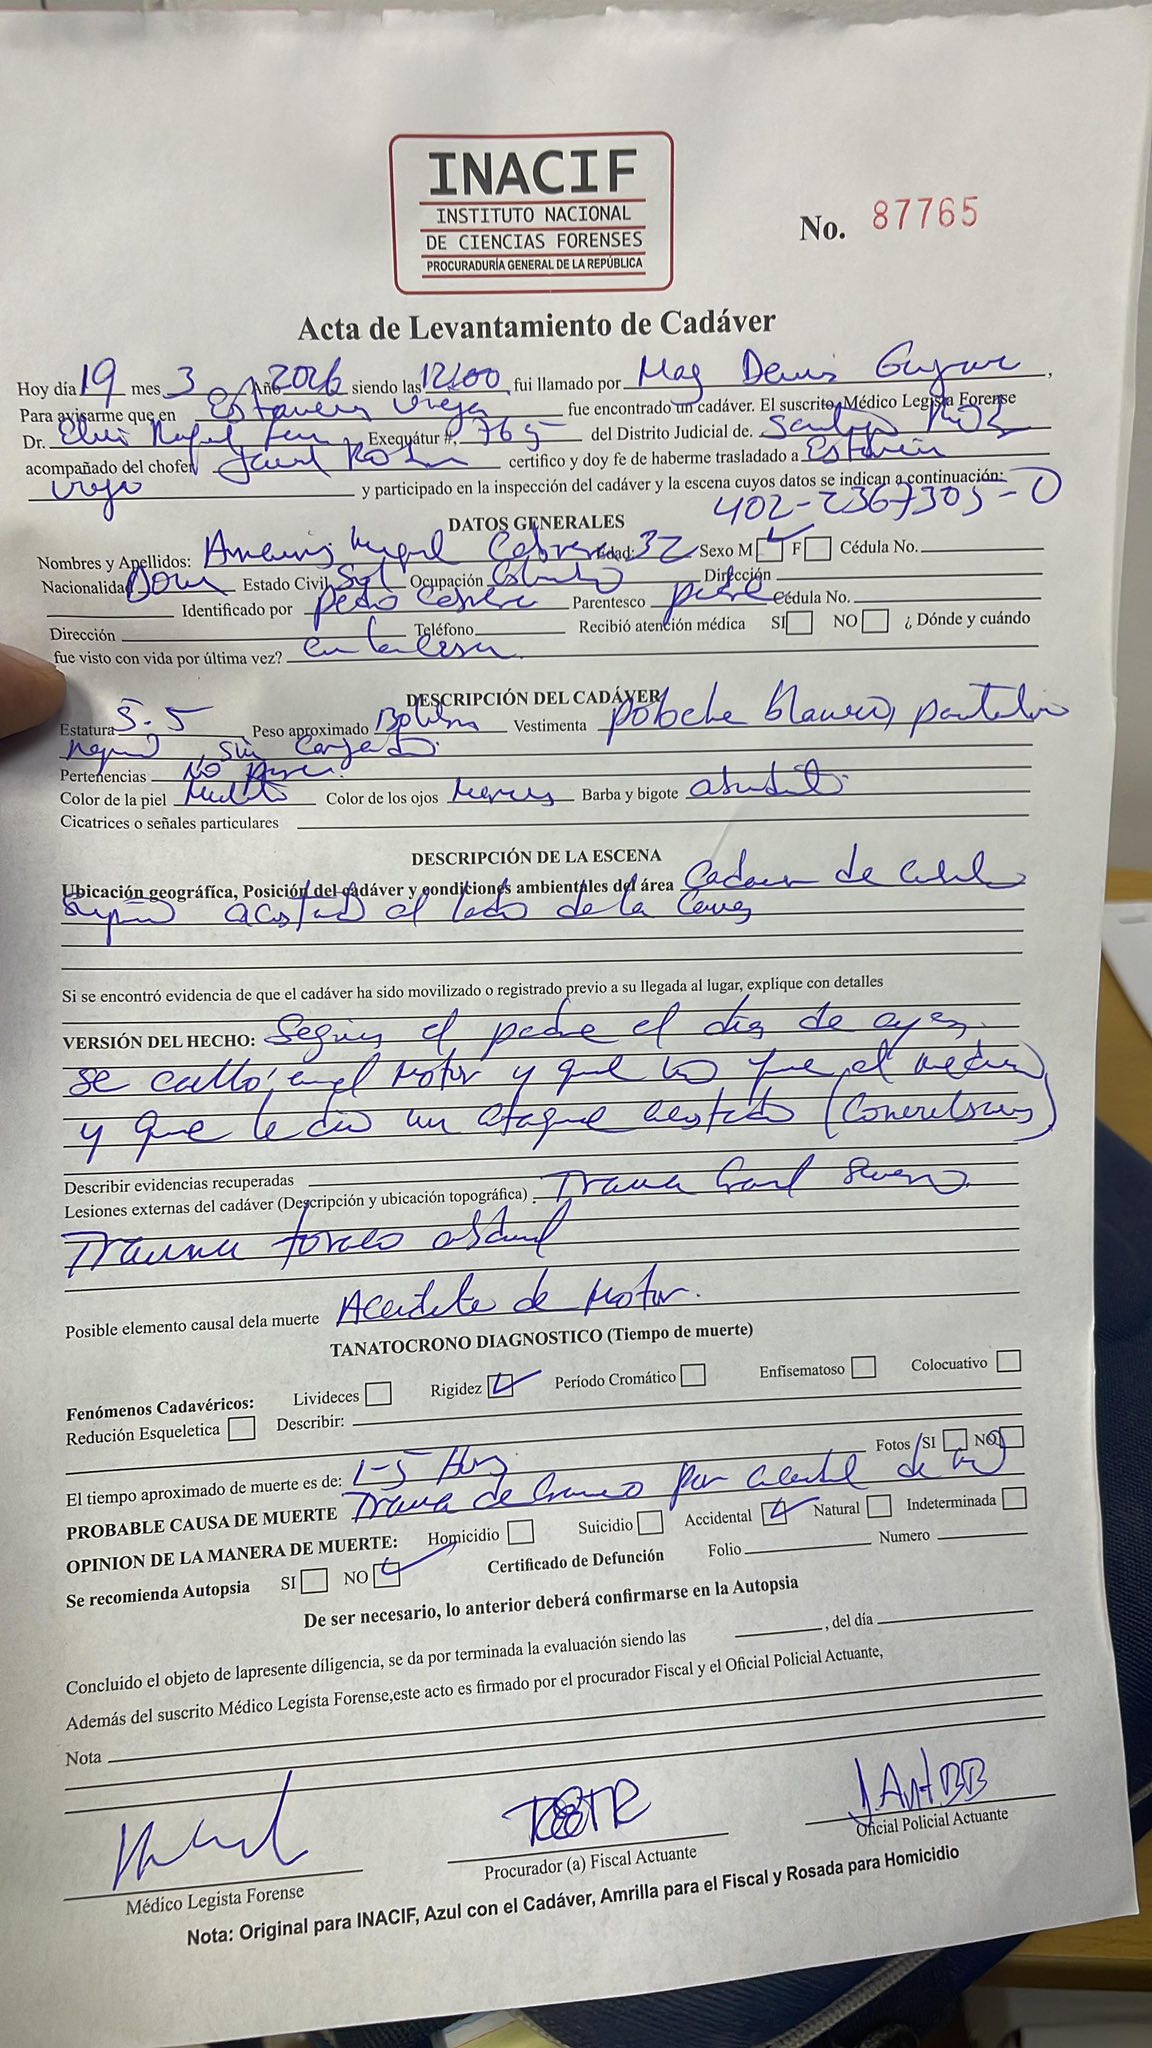 INACIF
INSTITUTO NACIONAL
DE CIENCIAS FORENSES
PROCURADURÍA GENERAL DE LA REPÚBLICA
No. 87765
Acta de Levantamiento de Cadáver
Hoy día 19 mes 3 Año 2026 siendo las 12:00 fui llamado por Mag Denis
Para avisarme que en Estancia Vieja fue encontrado un cadáver. El suscrito, Médico Legista Forense
Dr. Rafael Exequátur #, 765 del Distrito Judicial de. Santiago
acompañado del chofer certifico y doy fe de haberme trasladado a Estancia
Vieja y participado en la inspección del cadáver y la escena cuyos datos se indican a continuación:
402-2367305-0
DATOS GENERALES
Nombres y Apellidos: Miguel Cabrera Edad: 32 Sexo M F Cédula No.
Nacionalidad Dom Estado Civil Sol Ocupación Dirección
Identificado por Pedro Cabrera Parentesco padre Cédula No.
Dirección Teléfono Recibió atención médica SI NO ¿ Dónde y cuándo
fue visto con vida por última vez? en la casa
DESCRIPCIÓN DEL CADÁVER
Estatura 5.5 Peso aproximado Vestimenta poloche blanco, pantalón
negro, sin
Pertenencias No
Color de la piel Color de los ojos Barba y bigote
Cicatrices o señales particulares
DESCRIPCIÓN DE LA ESCENA
Ubicación geográfica, Posición del cadáver y condiciones ambientales del área Cadaver de
acostado al lado de la
Si se encontró evidencia de que el cadáver ha sido movilizado o registrado previo a su llegada al lugar, explique con detalles
VERSIÓN DEL HECHO: Según el padre el dia de ayer
se calló en el Motor y que no fue al medico
y que le dio un ataque (Convulsiones)
Describir evidencias recuperadas
Lesiones externas del cadáver (Descripción y ubicación topográfica) Trauma Severo
Trauma toraco
Posible elemento causal dela muerte Accidente de Motor.
TANATOCRONO DIAGNOSTICO (Tiempo de muerte)
Fenómenos Cadavéricos: Livideces Rigidez Período Cromático Enfisematoso Colocuativo
Redución Esqueletica Describir:
Fotos SI NO
El tiempo aproximado de muerte es de: 1-5 Hrs
PROBABLE CAUSA DE MUERTE Trauma de Craneo por de
OPINION DE LA MANERA DE MUERTE: Homicidio Suicidio Accidental Natural Indeterminada
Se recomienda Autopsia SI NO Certificado de Defunción Folio Numero
De ser necesario, lo anterior deberá confirmarse en la Autopsia
Concluído el objeto de lapresente díligencia, se da por terminada la evaluación siendo las , del día
Además del suscrito Médico Legista Forense,este acto es firmado por el procurador Fiscal y el Oficial Policial Actuante,
Nota
Médico Legista Forense
Procurador (a) Fiscal Actuante
Oficial Policial Actuante
Nota: Original para INACIF, Azul con el Cadáver, Amrilla para el Fiscal y Rosada para Homicidio